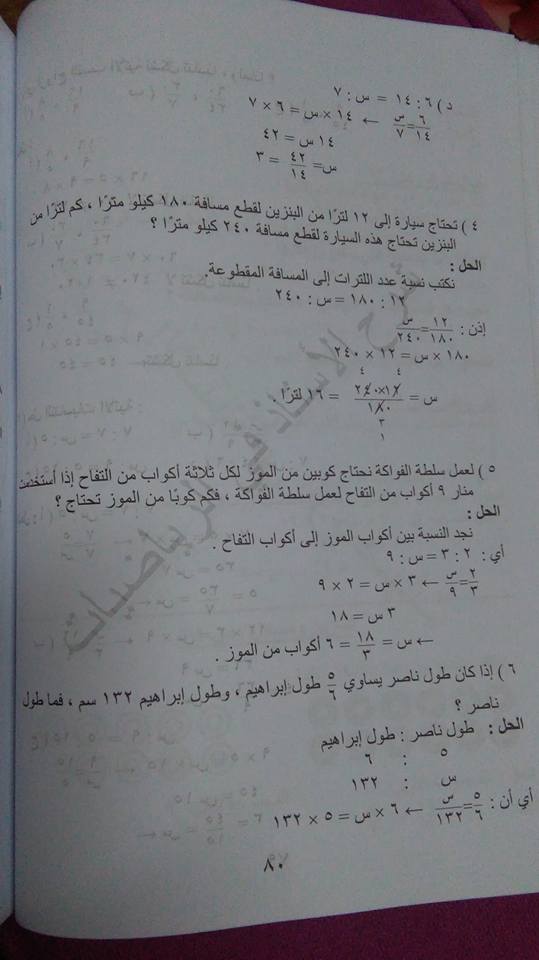 د ) ٦ : ١٤ = س : ٧
٦/١٤ = س/٧ ← ١٤ × س = ٦ × ٧
١٤ س = ٤٢
س = ٤٢/١٤ = ٣
٤ ) تحتاج سيارة إلى ١٢ لترًا من البنزين لقطع مسافة ١٨٠ كيلو مترًا ، كم لترًا من
البنزين تحتاج هذه السيارة لقطع مسافة ٢٤٠ كيلو مترًا ؟
الحل :
نكتب نسبة عدد اللترات إلى المسافة المقطوعة.
١٢ : ١٨٠ = س : ٢٤٠
إذن : ١٢/١٨٠ = س/٢٤٠
١٨٠ × س = ١٢ × ٢٤٠
٤ ٤
س = ٢٤٠×١٢/١٨٠ = ١٦ لترًا .
٣
١
٥ ) لعمل سلطة الفواكة نحتاج كوبين من الموز لكل ثلاثة أكواب من التفاح إذا أستخدمت
منار ٩ أكواب من التفاح لعمل سلطة الفواكة ، فكم كوبًا من الموز تحتاج ؟
الحل :
نجد النسبة بين أكواب الموز إلى أكواب التفاح .
أي : ٢ : ٣ = س : ٩
٢/٣ = س/٩ ← ٣ × س = ٢ × ٩
٣ س = ١٨
← س = ١٨/٣ = ٦ أكواب من الموز .
٦ ) إذا كان طول ناصر يساوي ٥/٦ طول إبراهيم ، وطول إبراهيم ١٣٢ سم ، فما طول
ناصر ؟
الحل : طول ناصر : طول إبراهيم
٥ : ٦
س : ١٣٢
أي أن : ٥/٦ = س/١٣٢ ← ٦ × س = ٥ × ١٣٢
٨٠